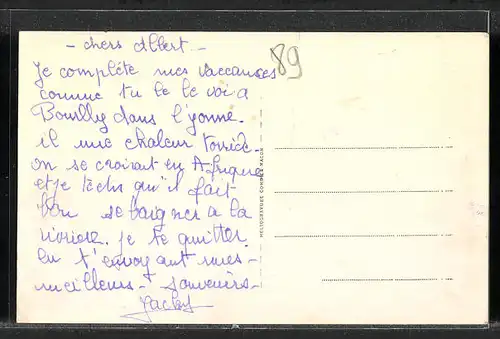 - chers Albert -
je complète mes vaccanses
comme tu le le voi a
Bourlly dans l'yonne.
il une chaleur torride -
on se croirait en Afrique
et je técris qu'il fait
bon se baigner a la
rivière. je te quitter
en t'envoyant mes -
meilleurs - souvenirs -
Jacky
89
HELIOGRAVURE COMBIER MACON